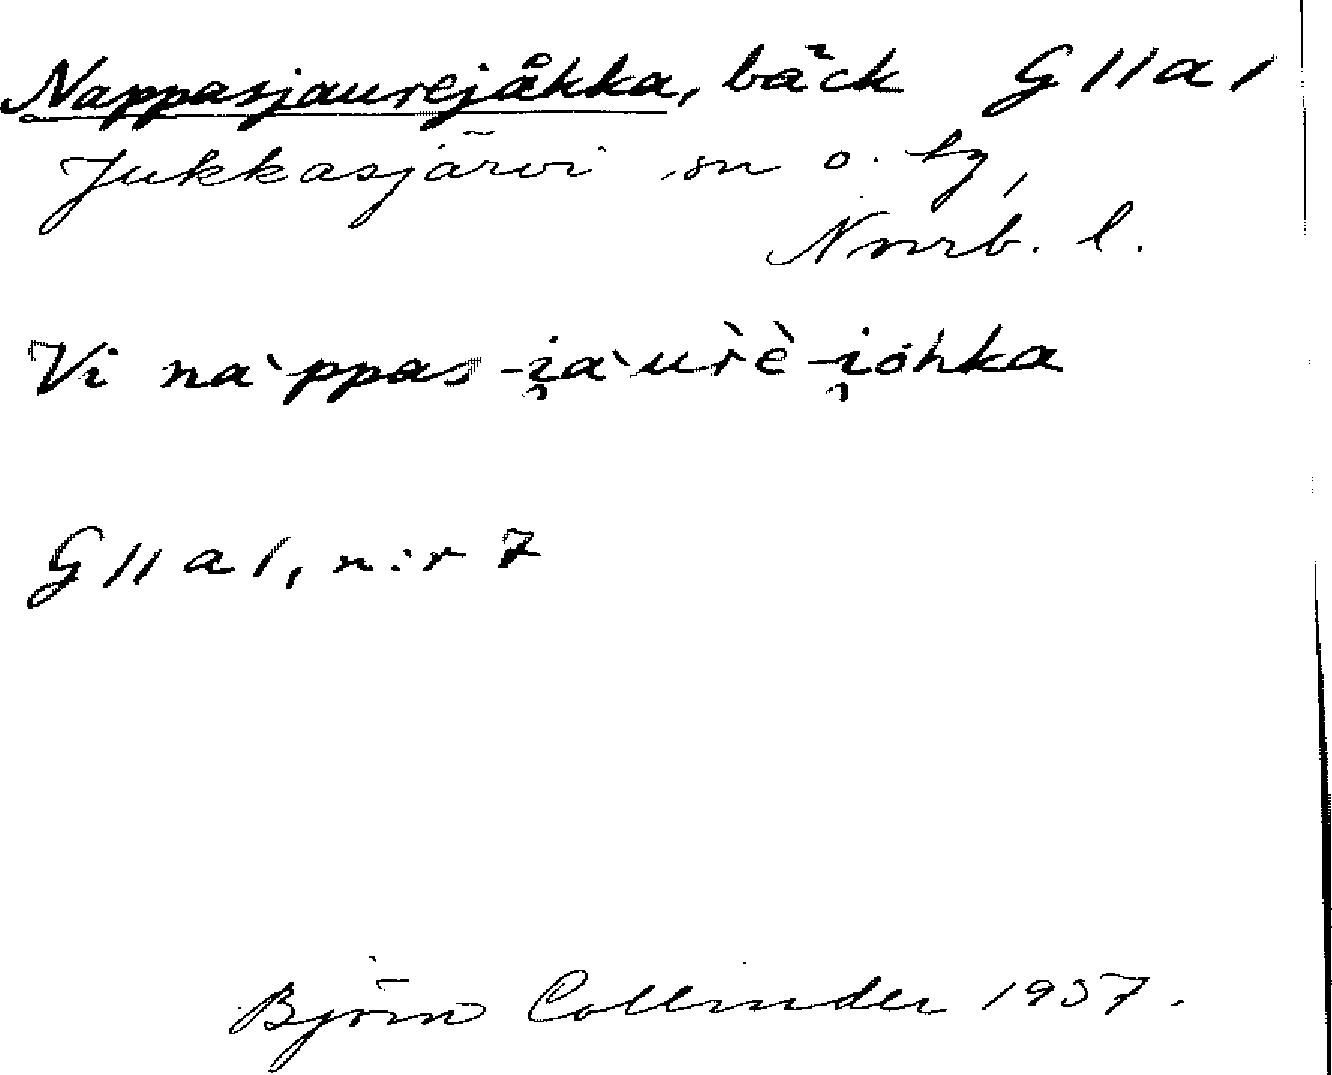 Nappasjaurejåkka, bäck G II a 1
Jukkasjärvi sn o. tg,
Norrb. l.
Vi na`ppas-i̯a`ur̀è-i̯ȯhka
G II a 1, n:r 7
Björn Collinder 1957.